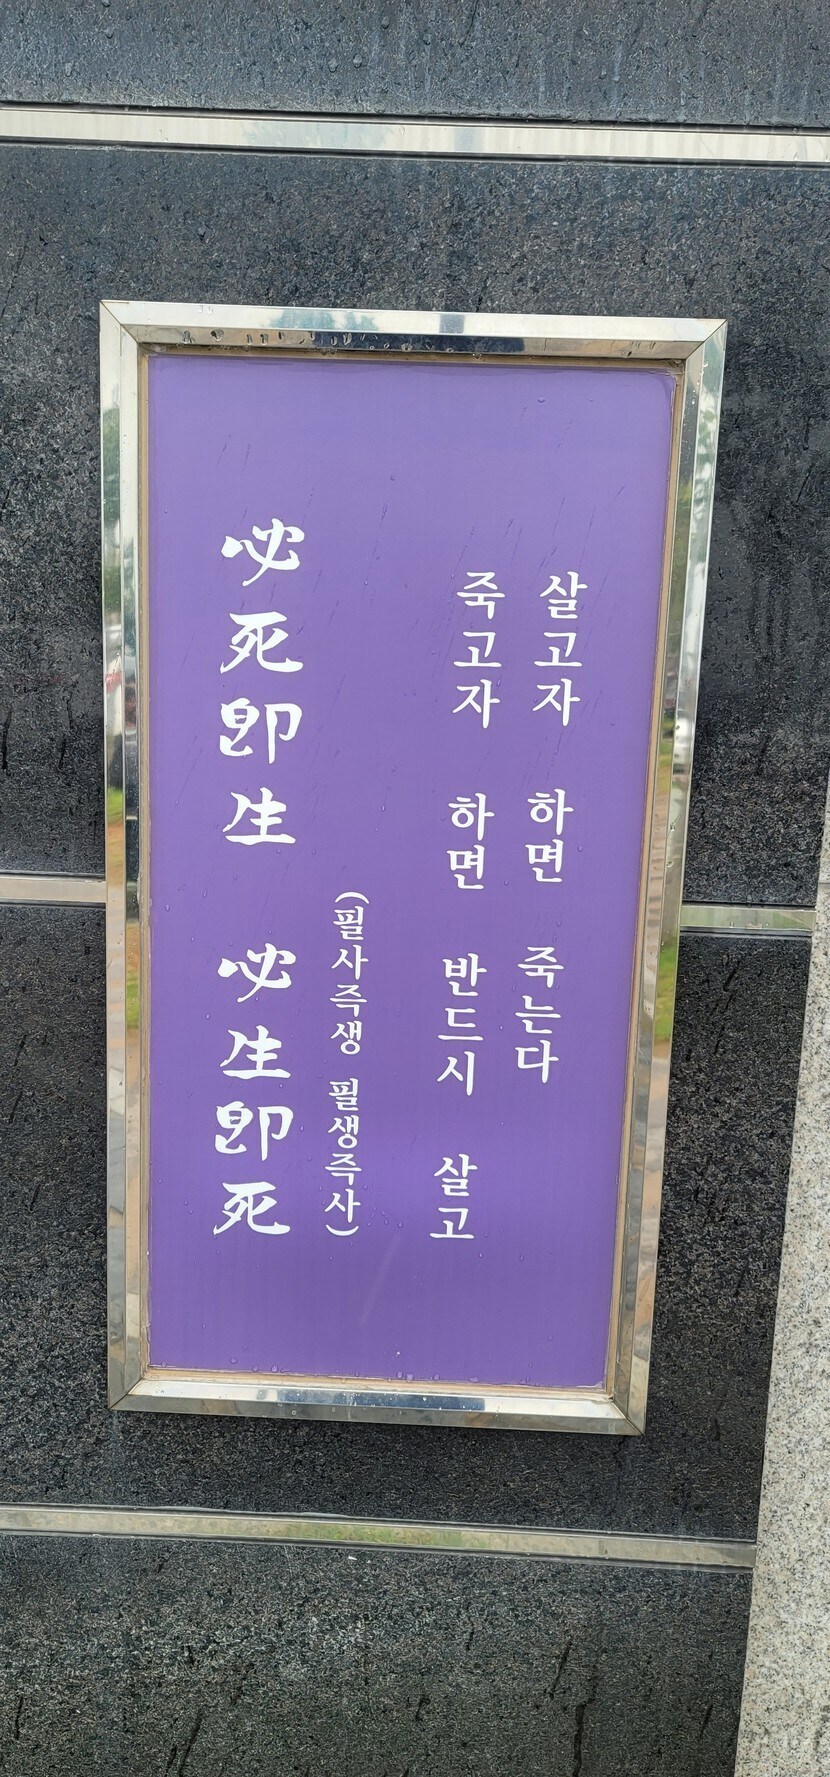 必死卽生 必生卽死
(필사즉생 필생즉사)
죽고자 하면 반드시 살고
살고자 하면 죽는다